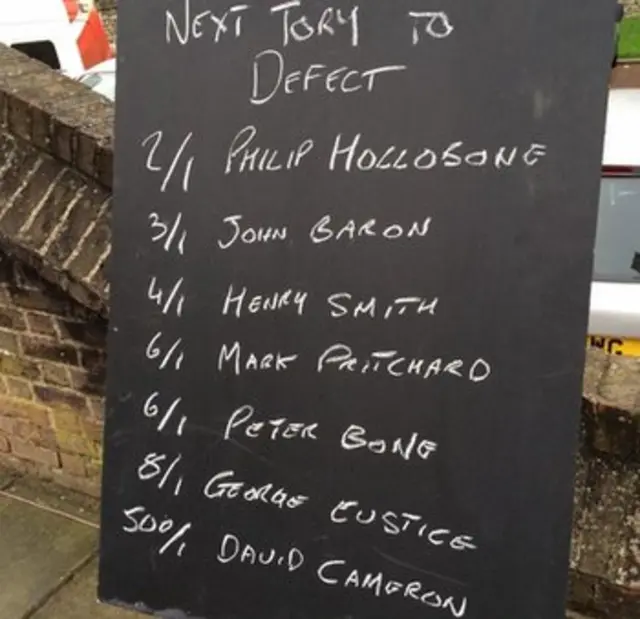 NEXT TORY TO
DEFECT
2/1 PHILIP HOLLOBONE
3/1 JOHN BARON
4/1 HENRY SMITH
6/1 MARK PRITCHARD
6/1 PETER BONE
8/1 GEORGE EUSTICE
500/1 DAVID CAMERON
WG